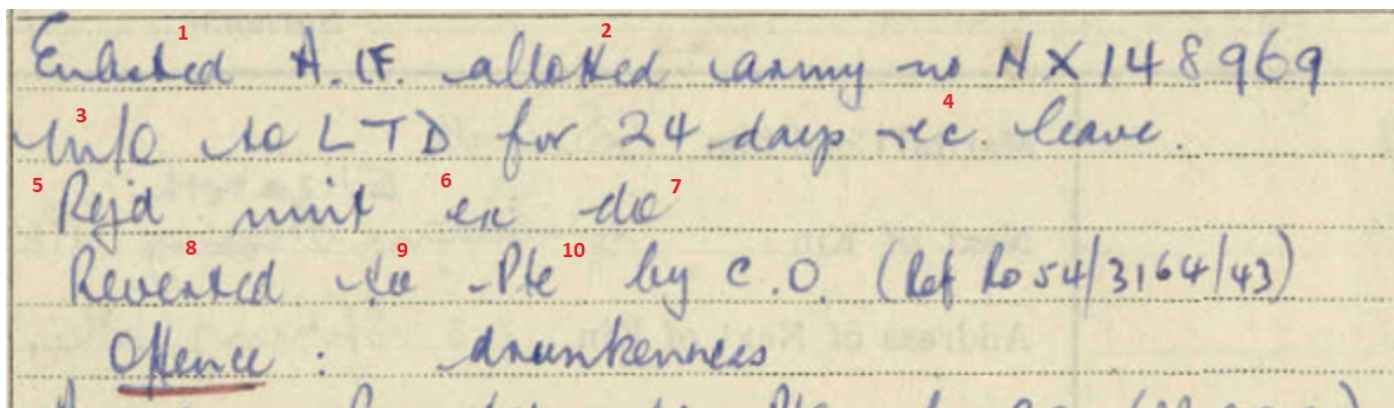 Enlisted A.I.F. allotted army no NX148969
M/O to LTD for 24 days rec. leave.
Rejd unit ex do
Reverted to Pte by C.O. (Ref Ro 54/3164/43)
Offence : drunkenness
1
2
3
4
5
6
7
8
9
10